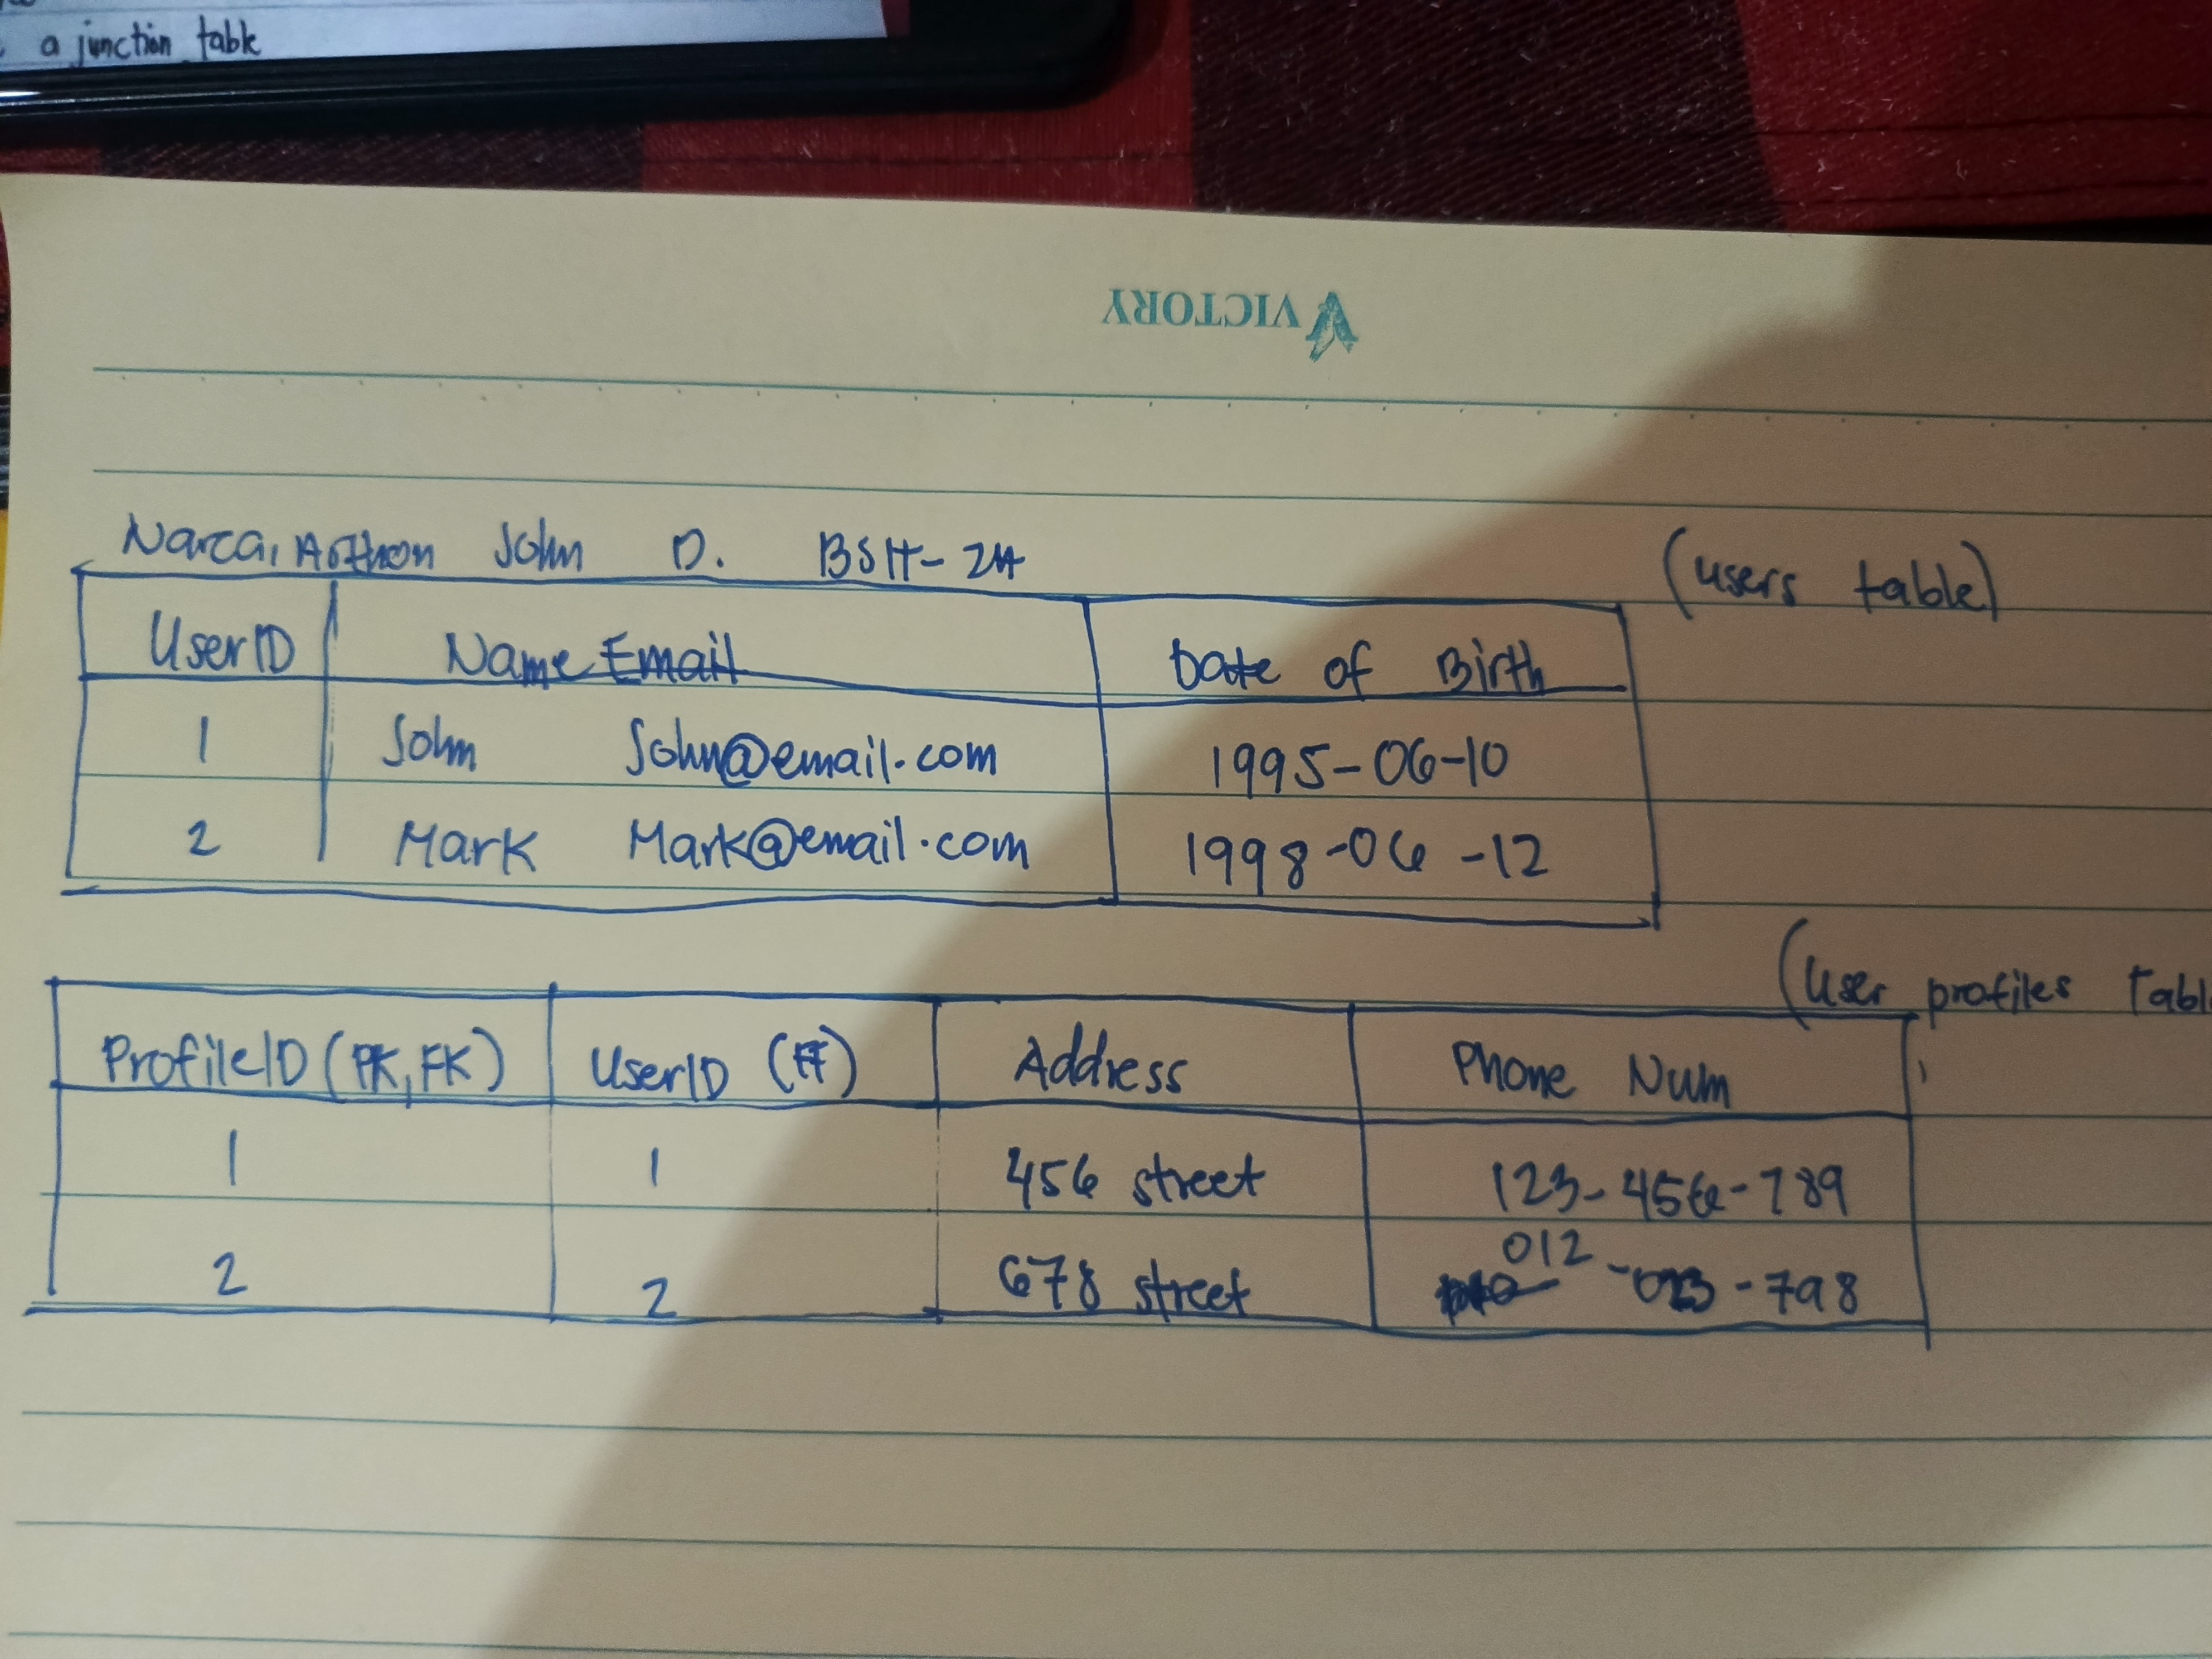 a junction table
VICTORY
Narca, John D. BSIT-2A
(users table)
UserID Name Email Date of Birth
1 John John@email.com 1995-06-10
2 Mark Mark@email.com 1998-06-12
(User profiles tabl
ProfileID (PK, FK) UserID Address Phone Num
1 1 456 street 123-456-789
2 2 678 street 012 - 023 - 798